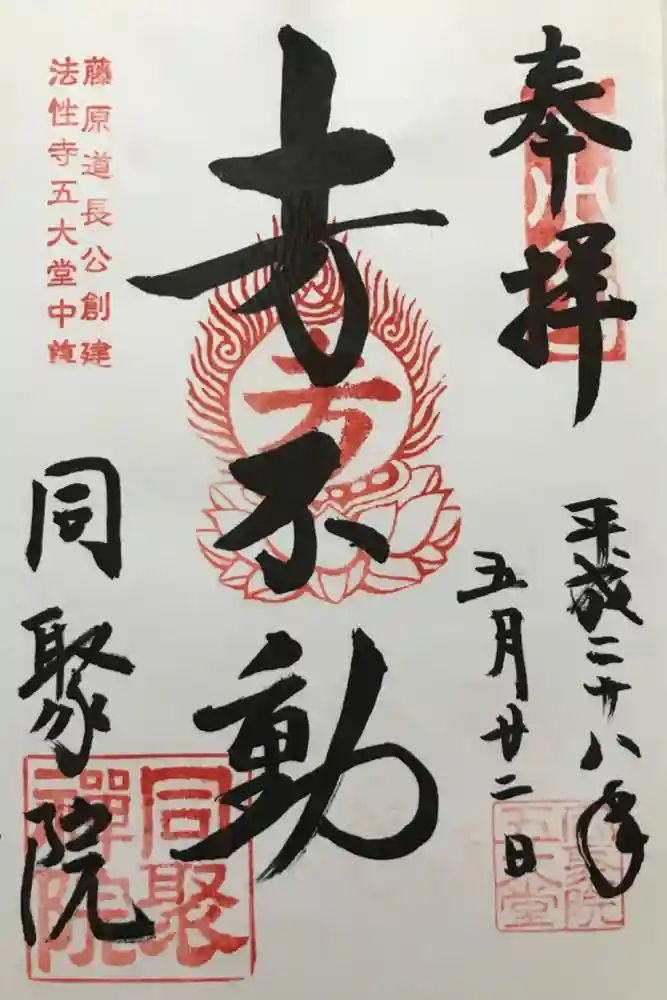 奉拝
平成二十八年
五月廿二日
十万不動
藤原道長公創建
法性寺五大堂中
同聚院
同聚
禪院
同聚院
五大堂